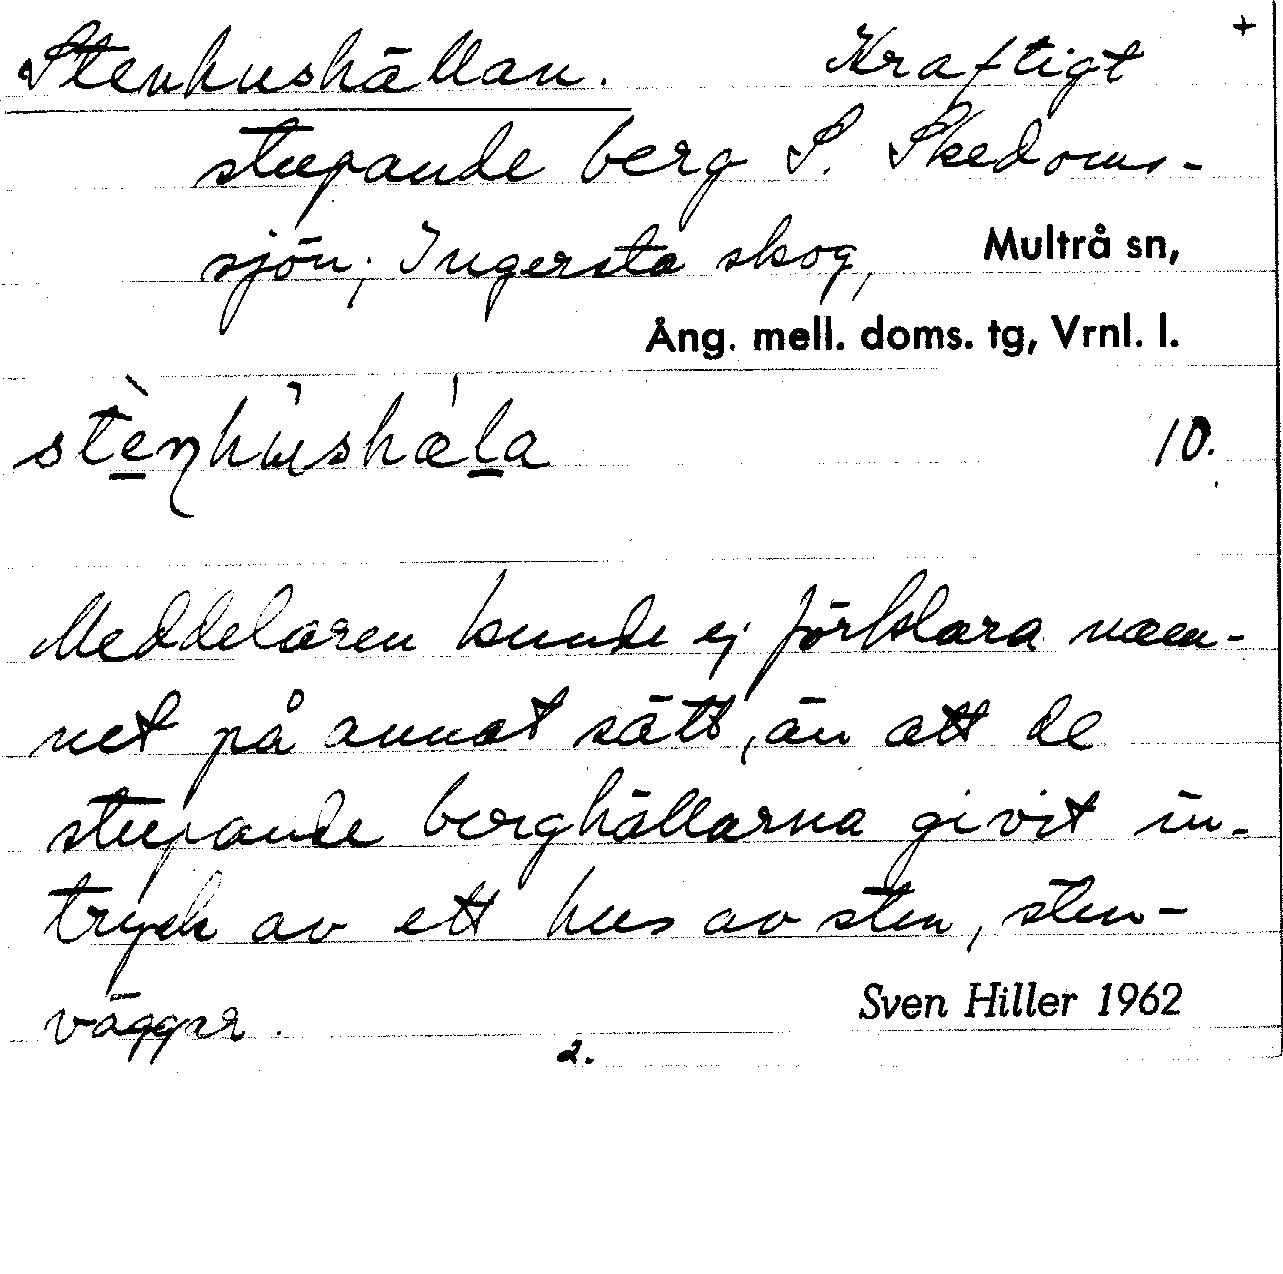 Stenhushällan. Kraftigt +
stupande berg S. Skedoms-
sjön; Ingersta skog, Multrå sn,
Ång. mell. doms. tg, Vrnl. l.
10.
Meddelaren kunde ej förklara nam-
net på annat sätt, än att de
stupande berghällarna givit in-
tryck av ett hus av sten, sten-
väggar.
Sven Hiller 1962
2.